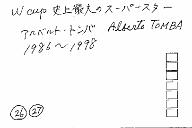 W cup 史上最大のスーパースター
アルベルト・トンバ Alberto TOMBA
1986〜1998
26 27